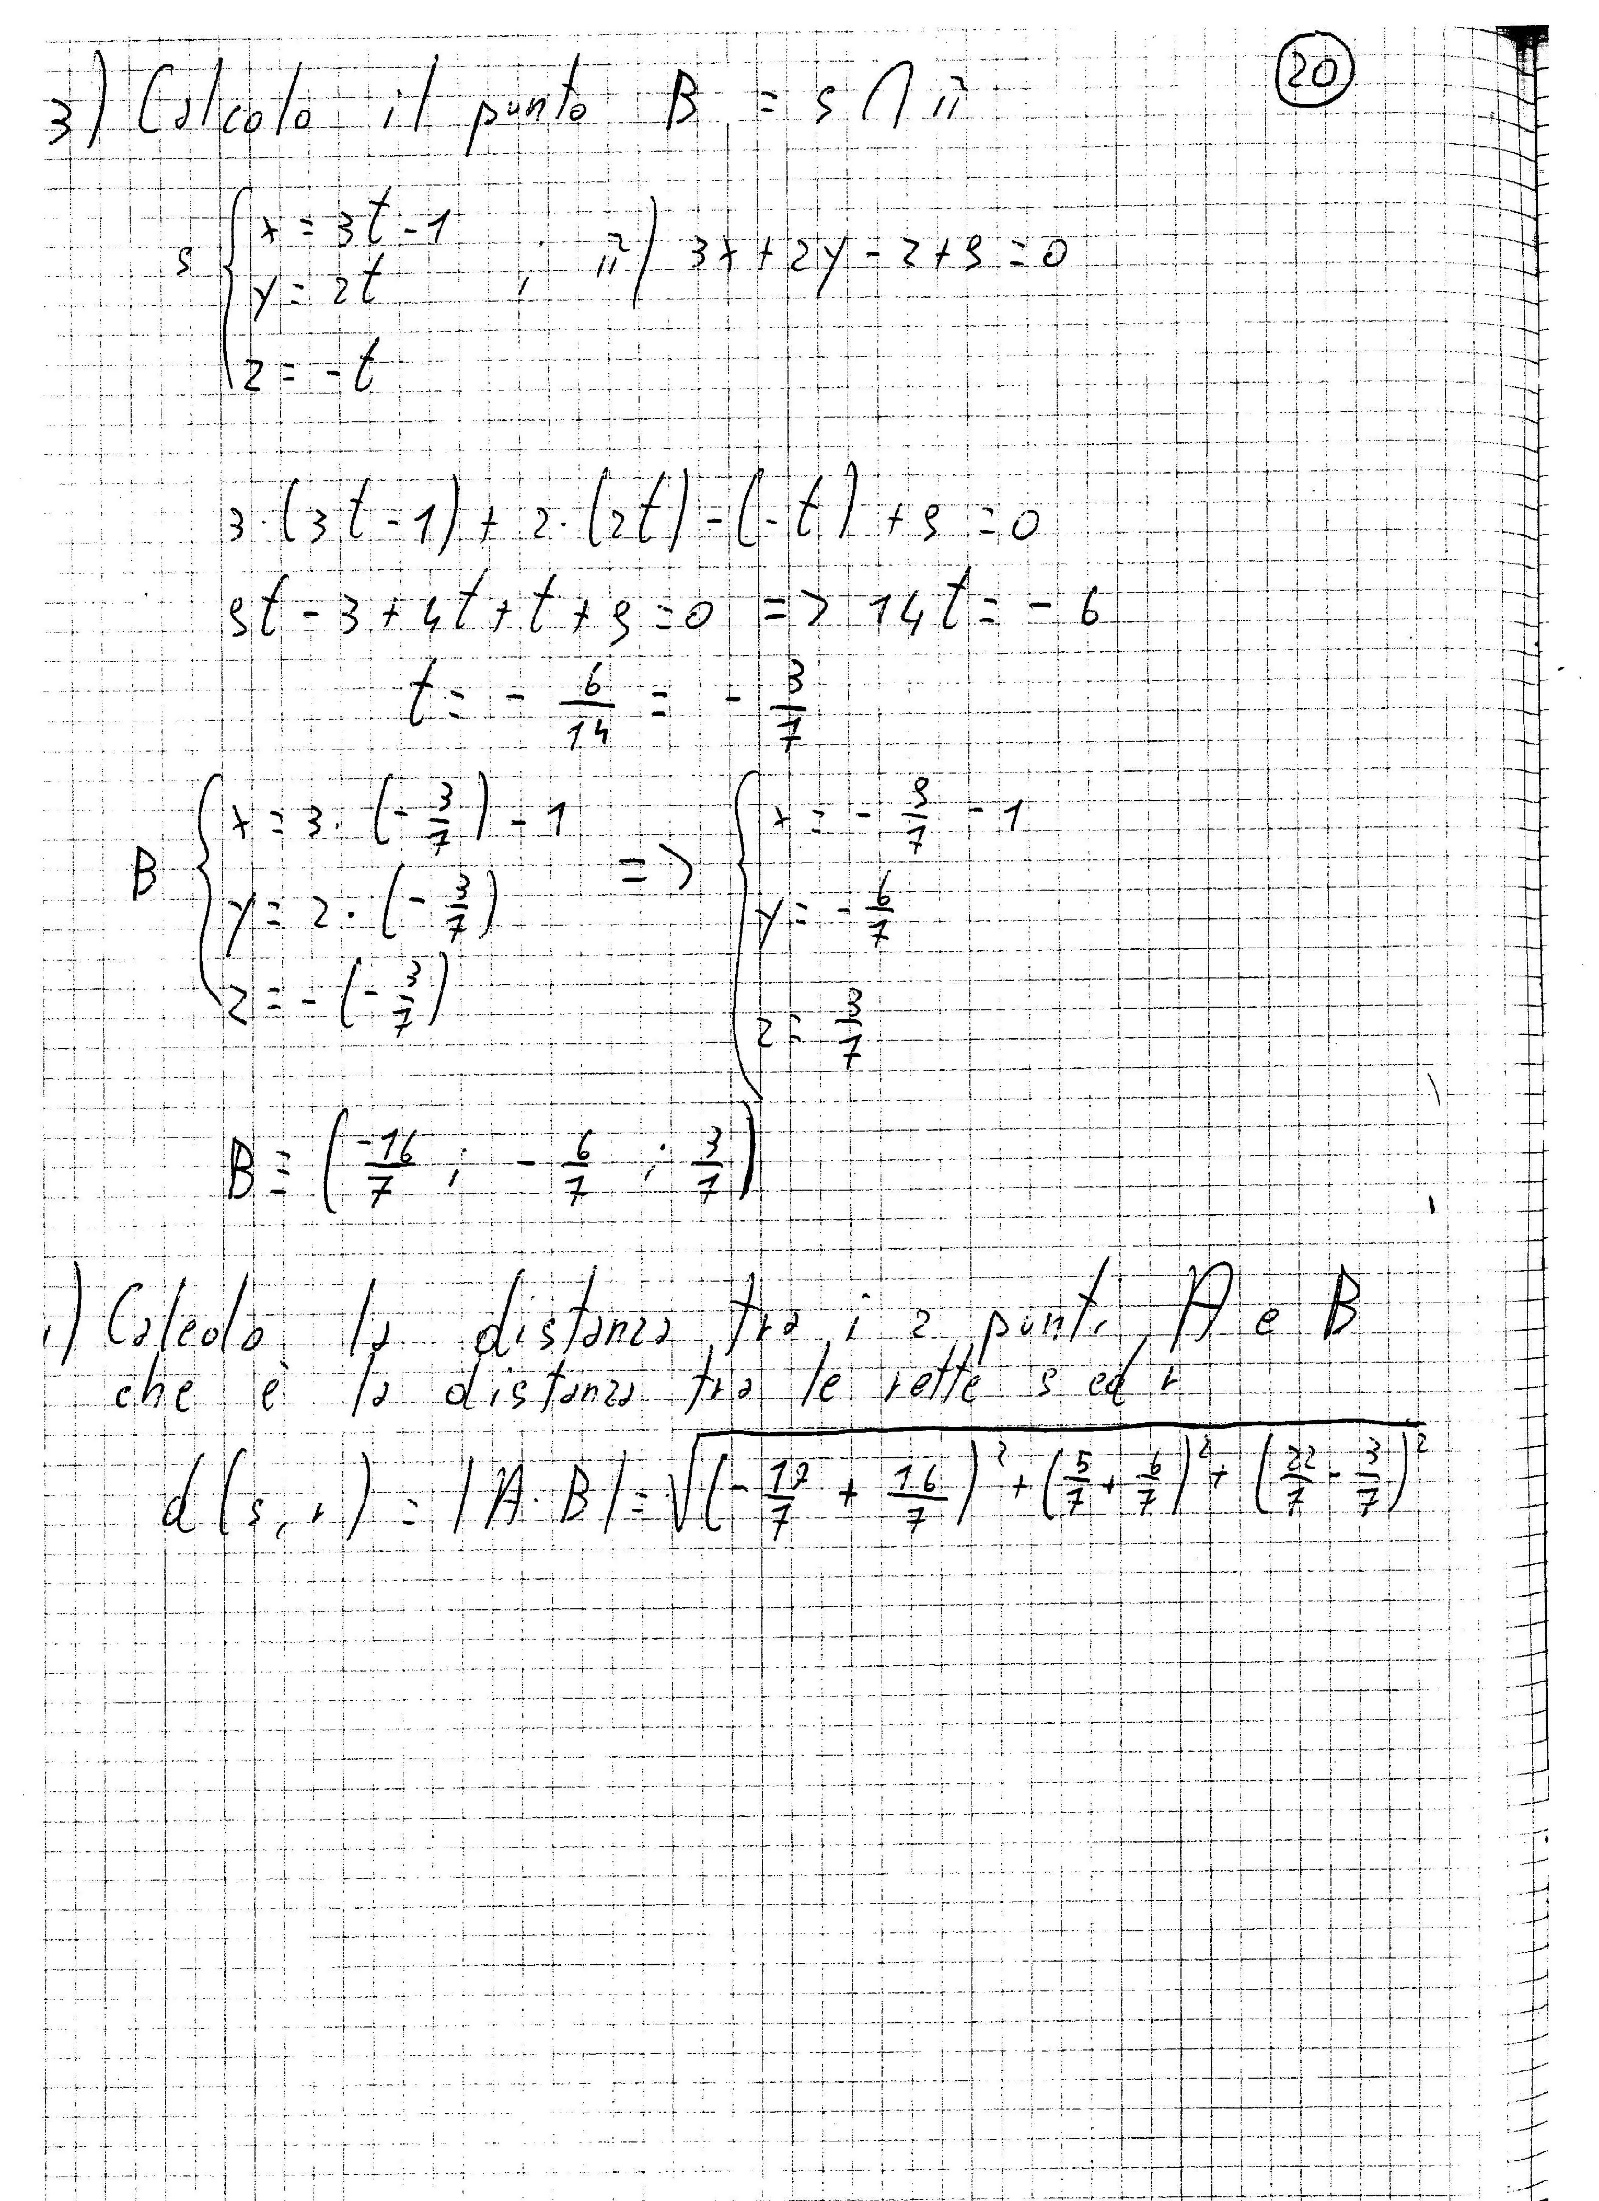 20
3) Calcolo il punto B = s ∩ π
s { x = 3t - 1
y = 2t ; π) 3x + 2y - z + 9 = 0
z = -t
3·(3t - 1) + 2·(2t) - (-t) + 9 = 0
9t - 3 + 4t + t + 9 = 0 => 14t = - 6
t = - 6/14 = - 3/7
B { x = 3·(- 3/7) - 1 => { x = - 9/7 - 1
y = 2·(- 3/7) y = - 6/7
z = - (- 3/7) z = 3/7
B ≡ (-16/7 ; - 6/7 ; 3/7)
) Calcolo la distanza tra i 2 punti A e B
che è la distanza tra le rette s ed r
d(s, r) = |A - B| = √((- /7 + 16/7)² + (5/7 + 6/7)² + (22/7 - 3/7)²)